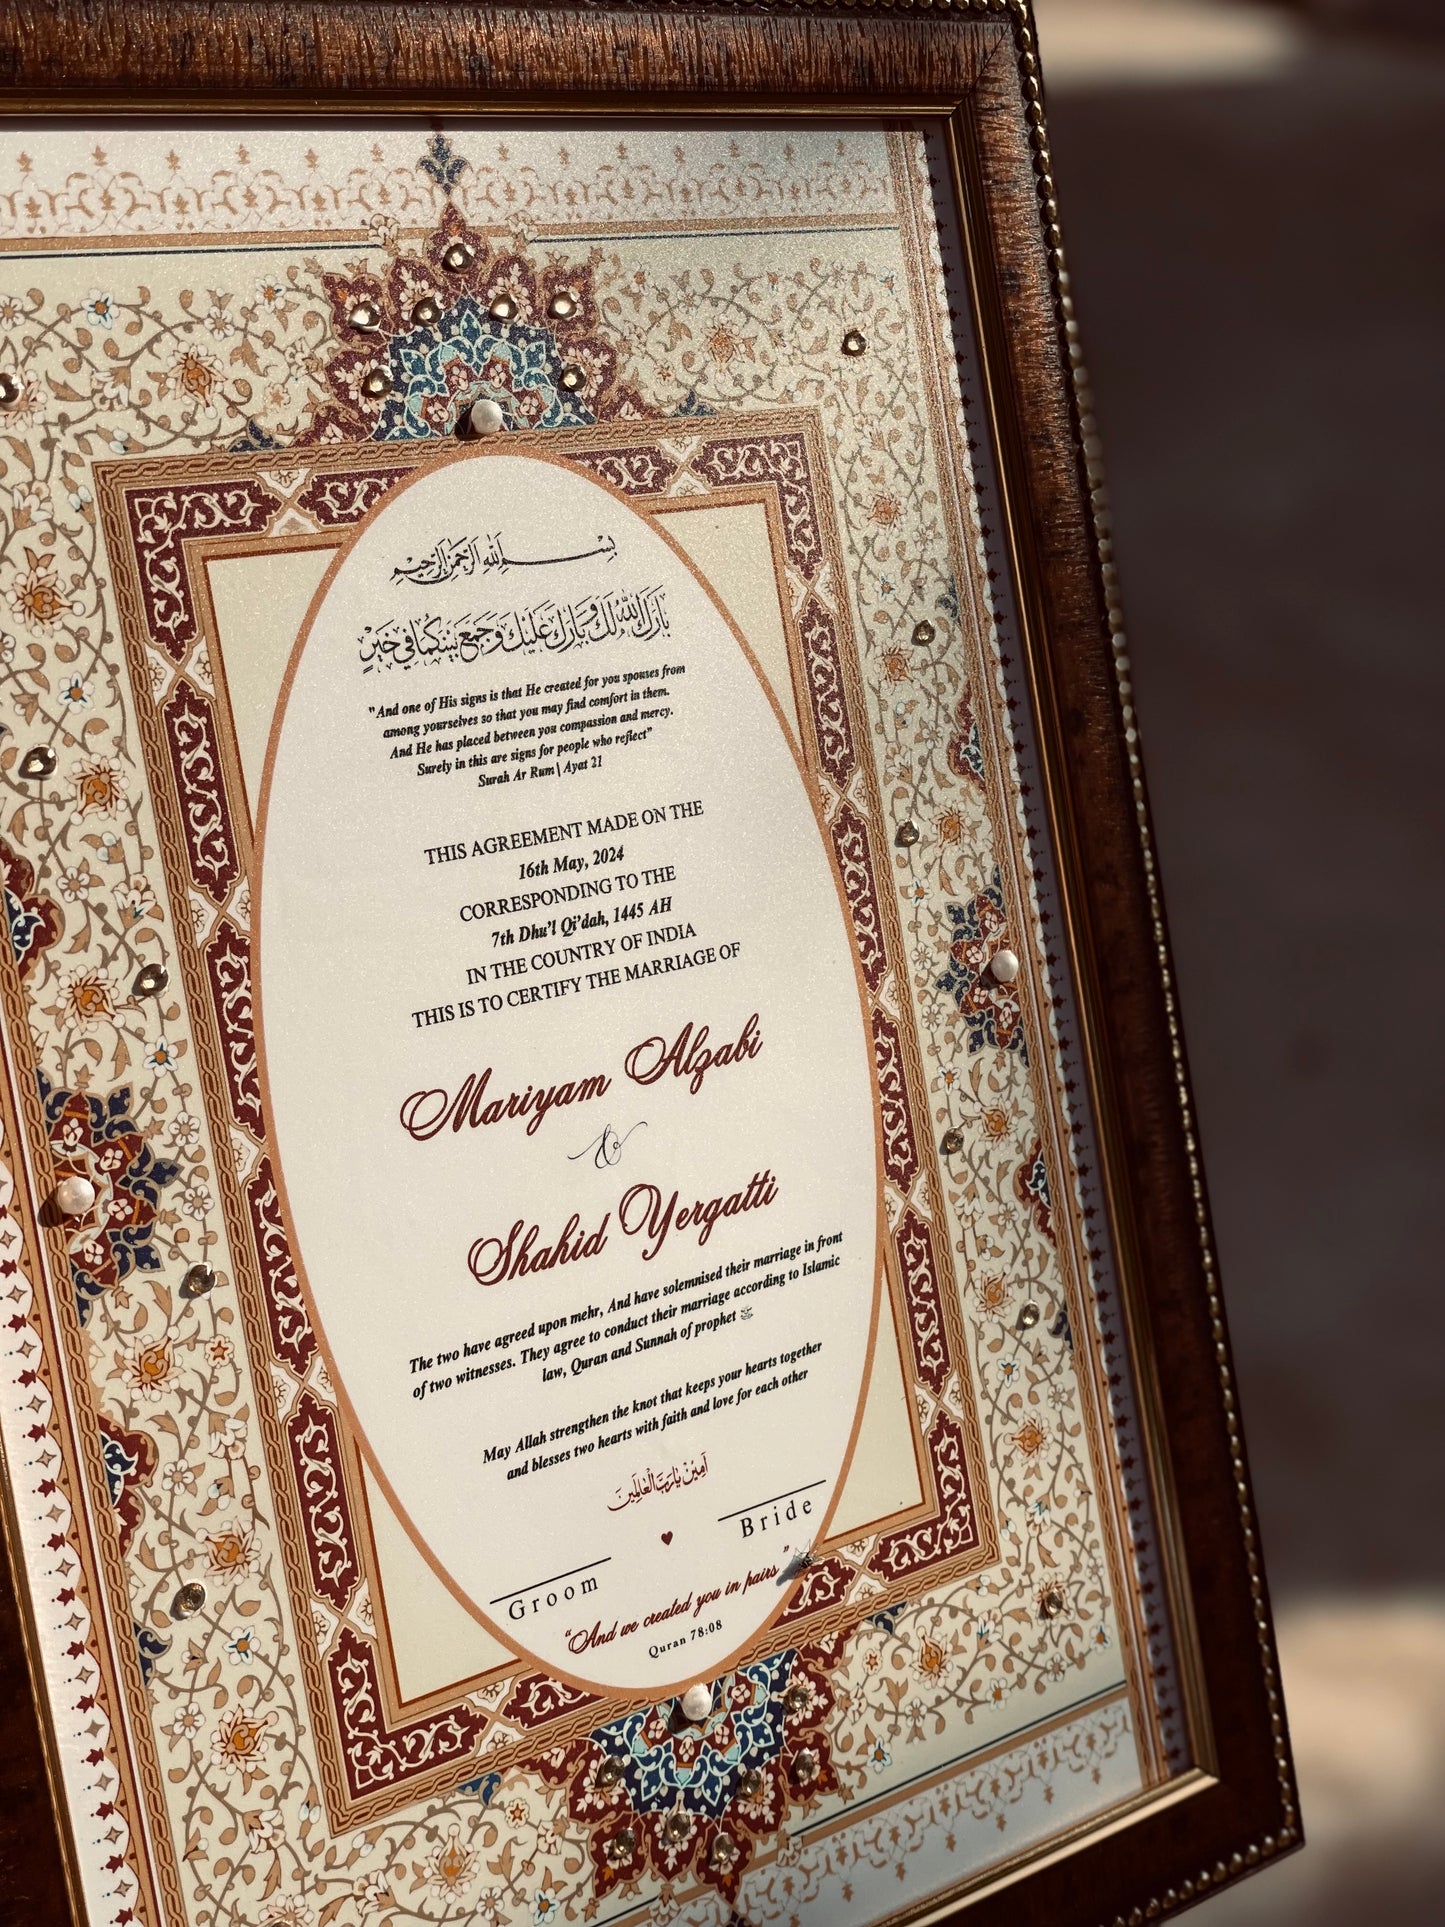 بسم الله الرحمن الرحيم
بَارَكَ اللهُ لَكَ وَبَارَكَ عَلَيْكَ وَجَمَعَ بَيْنَكُمَا فِي خَيْرٍ
"And one of His signs is that He created for you spouses from
among yourselves so that you may find comfort in them.
And He has placed between you compassion and mercy.
Surely in this are signs for people who reflect"
Surah Ar Rum\ Ayat 21
THIS AGREEMENT MADE ON THE
16th May, 2024
CORRESPONDING TO THE
7th Dhu'l Qi'dah, 1445 AH
IN THE COUNTRY OF INDIA
THIS IS TO CERTIFY THE MARRIAGE OF
Mariyam Alzabi
&
Shahid Yergatti
The two have agreed upon mehr, And have solemnised their marriage in front
of two witnesses. They agree to conduct their marriage according to Islamic
law, Quran and Sunnah of prophet ﷺ
May Allah strengthen the knot that keeps your hearts together
and blesses two hearts with faith and love for each other
آمِيْن يَارَبَّ الْعَالَمِينَ
Bride
Groom
"And we created you in pairs"
Quran 78:08